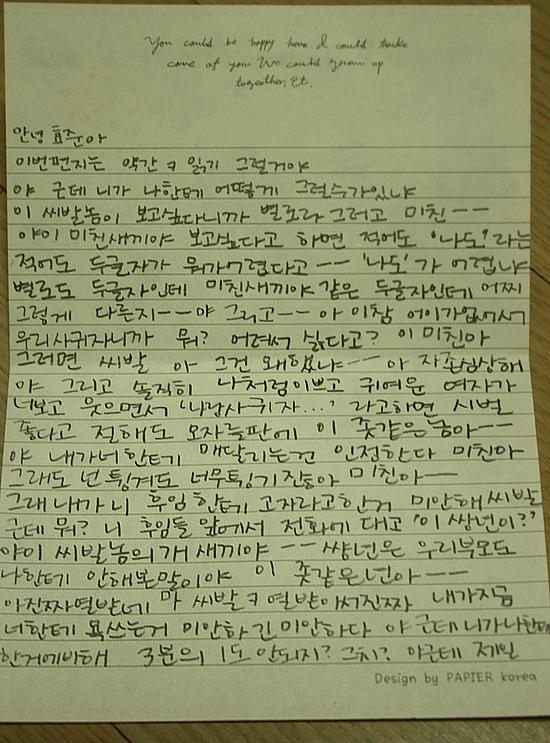 You could be happy here I could take
care of you We could grow up
together, Et.
안녕 효준아
이번편지는 약간 ㅋ 읽기 그럴거야
야 근데 니가 나한테 어떻게 그럴수가있냐
이 씨발놈이 보고싶다니까 별로라 그러고 미친--
야이 미친새끼야 보고싶다고 하면 적어도 '나도'라는
적어도 두글자가 뭐가어렵다고 -- '나도'가 어렵냐
별로도 두글자인데 미친새끼야 같은 두글자인데 어찌
그렇게 다른지--야 그리고-- 아 이참 어이가없어서
우리사귀자니까 뭐? 어려서 싫다고? 이 미친아
그러면 씨발 아 그건 왜했냐-- 아 자존심상해
야 그리고 솔직히 나처럼이쁘고 귀여운 여자가
너보고 웃으면서 '나랑사귀자...' 라고하면 시벌
좋다고 절해도 모자를판에 이 좆같은놈아--
야 내가너한테 매달리는건 인정한다 미친아
그래도 넌 튕겨도 너무튕기잖아 미친아--
그래 내가 니 후임한테 고자라고한거 미안해 씨발
근데 뭐? 니 후임들 앞에서 전화에 대고 '이 쌍년이?'
야이 씨발놈의 개새끼야 -- 썅년은 우리부모도
나한테 안해본말이야 이 좆같은년아--
아진짜열받네 마 씨발ㅋ열받아서진짜 내가지금
너한테 욕쓰는거 미안하긴미안하다 야 근데니가나한테
한거에비해 3분의 1도 안되지? 그치? 야근데 제일
Design by PAPIER korea